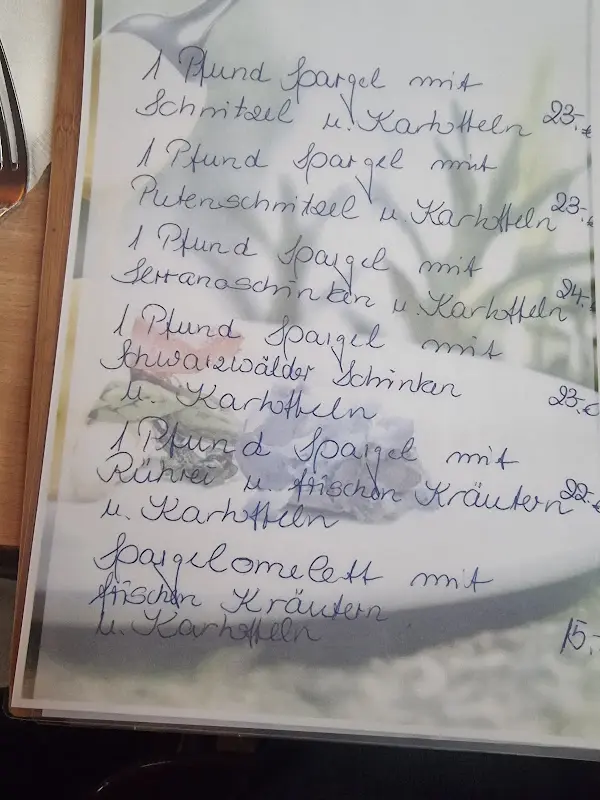 1 Pfund Spargel mit
Schnitzel u. Kartoffeln 23,-€
1 Pfund Spargel mit
Putenschnitzel u. Kartoffeln 23,-€
1 Pfund Spargel mit
Serranoschinken u. Kartoffeln 24,-€
1 Pfund Spargel mit
Schwarzwälder Schinken
u. Kartoffeln 23,-€
1 Pfund Spargel mit
Rührei u. frischen Kräutern 22,-€
u. Kartoffeln
Spargelomelett mit
frischen Kräutern
u. Kartoffeln 15,-